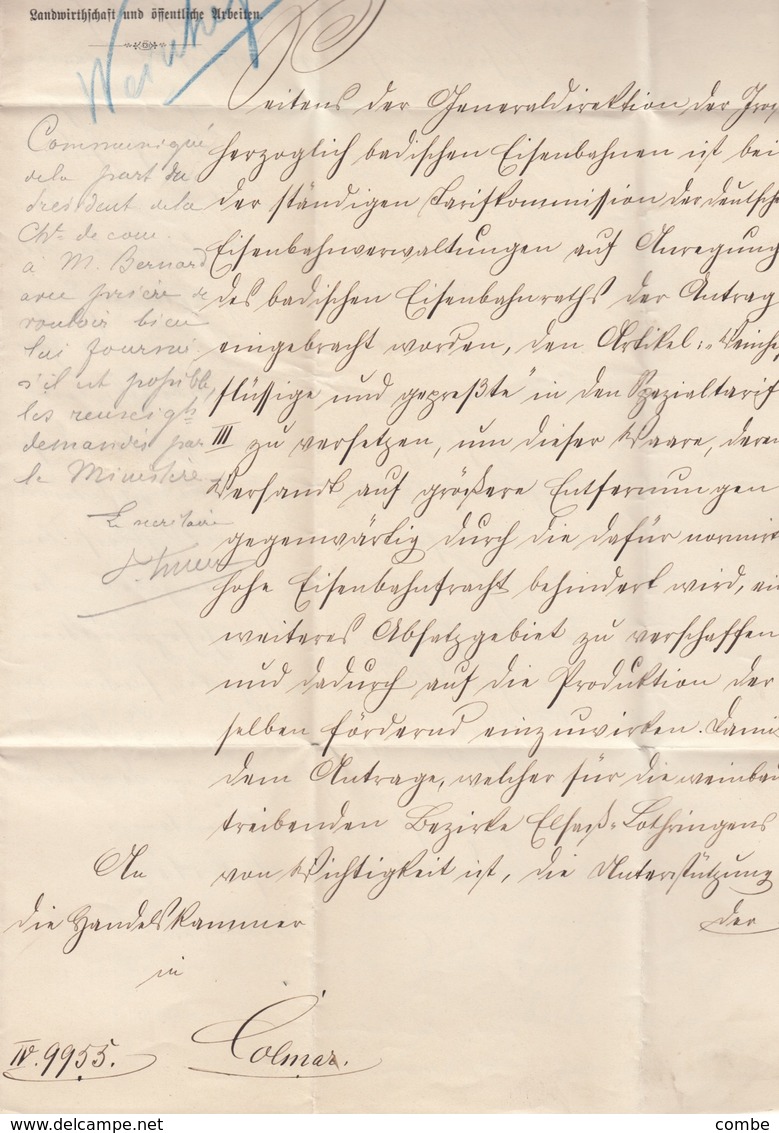 Landwirthschaft und öffentliche Arbeiten.
Seitens der Generaldirektion der Groß
herzoglich badischen Eisenbahnen ist bei
der ständigen Tarifkommission der deutsche
Eisenbahnverwaltungen auf Anregung
des badischen Eisenbahnraths der Antrag
eingebracht worden, den Artikel: „Weinhe
flüssige und gepreßte" in den Spezialtarif
III zu versetzen, um dieser Waare, deren
Versandt auf größere Entfernungen
gegenwärtig durch die dafür normirt
hohe Eisenbahnfracht behindert wird, ein
weiteres Absatzgebiet zu verschaffen
und dadurch auf die Produktion der
selben fördernd einzuwirken. Damit
dem Antrage, welcher für die weinbau
treibenden Bezirke Elsaß-Lothringens
von Wichtigkeit ist, die Unterstützung
der
Communiqué
de la part du
président de la
Ch. de com.
à M. Bernard
avec prière de
vouloir bien
lui fournir
s'il est possible,
les renseigts
demandés par
le Ministère
Le secrétaire
An
die Handelskammer
in
Colmar.
IV. 9955.
www.delcampe.net
combe